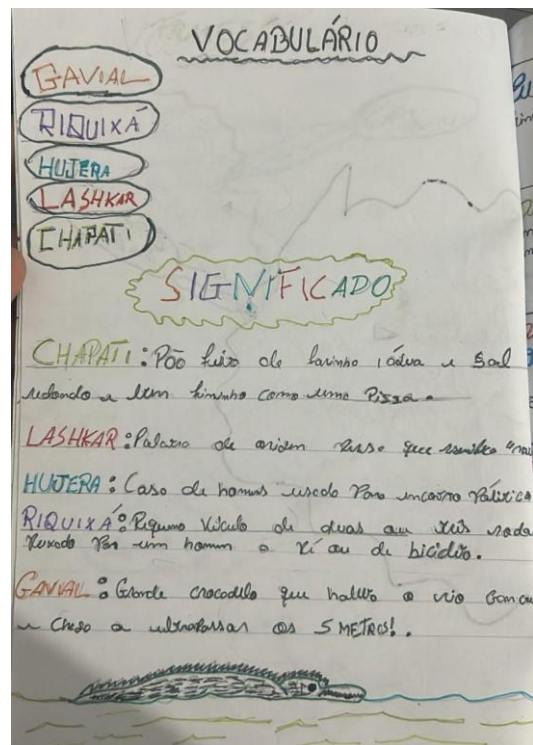 VOCABULÁRIO
GAVIAL
RIQUIXÁ
HUJERA
LASHKAR
CHAPATI
SIGNIFICADO
CHAPATI: Pão feito de farinha, água e sal
redondo e bem fininho como uma Pizza.
LASHKAR: Palavra de origem que significa
HUJERA: Casa de homens usada Para encontro Política
RIQUIXÁ: Pequeno Veículo de duas ou três roda
Puxado Por um homem a Pé ou de bicicleta.
GAVIAL: Grande crocodilo que habita o rio
e chega a ultrapassar os 5 METROS!.